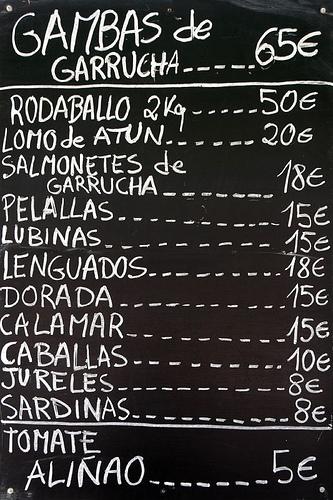 GAMBAS de
GARRUCHA ------ 65€
RODABALLO 2Kg ----- 50€
LOMO de ATÚN ------ 20€
SALMONETES de
GARRUCHA ------ 18€
PELALLAS ------- 15€
LUBINAS -------- 15€
LENGUADOS ------- 18€
DORADA -------- 15€
CALAMAR ------- 15€
CABALLAS ------- 10€
JURELES ------- 8€
SARDINAS ------- 8€
TOMATE
ALIÑAO ------ 5€